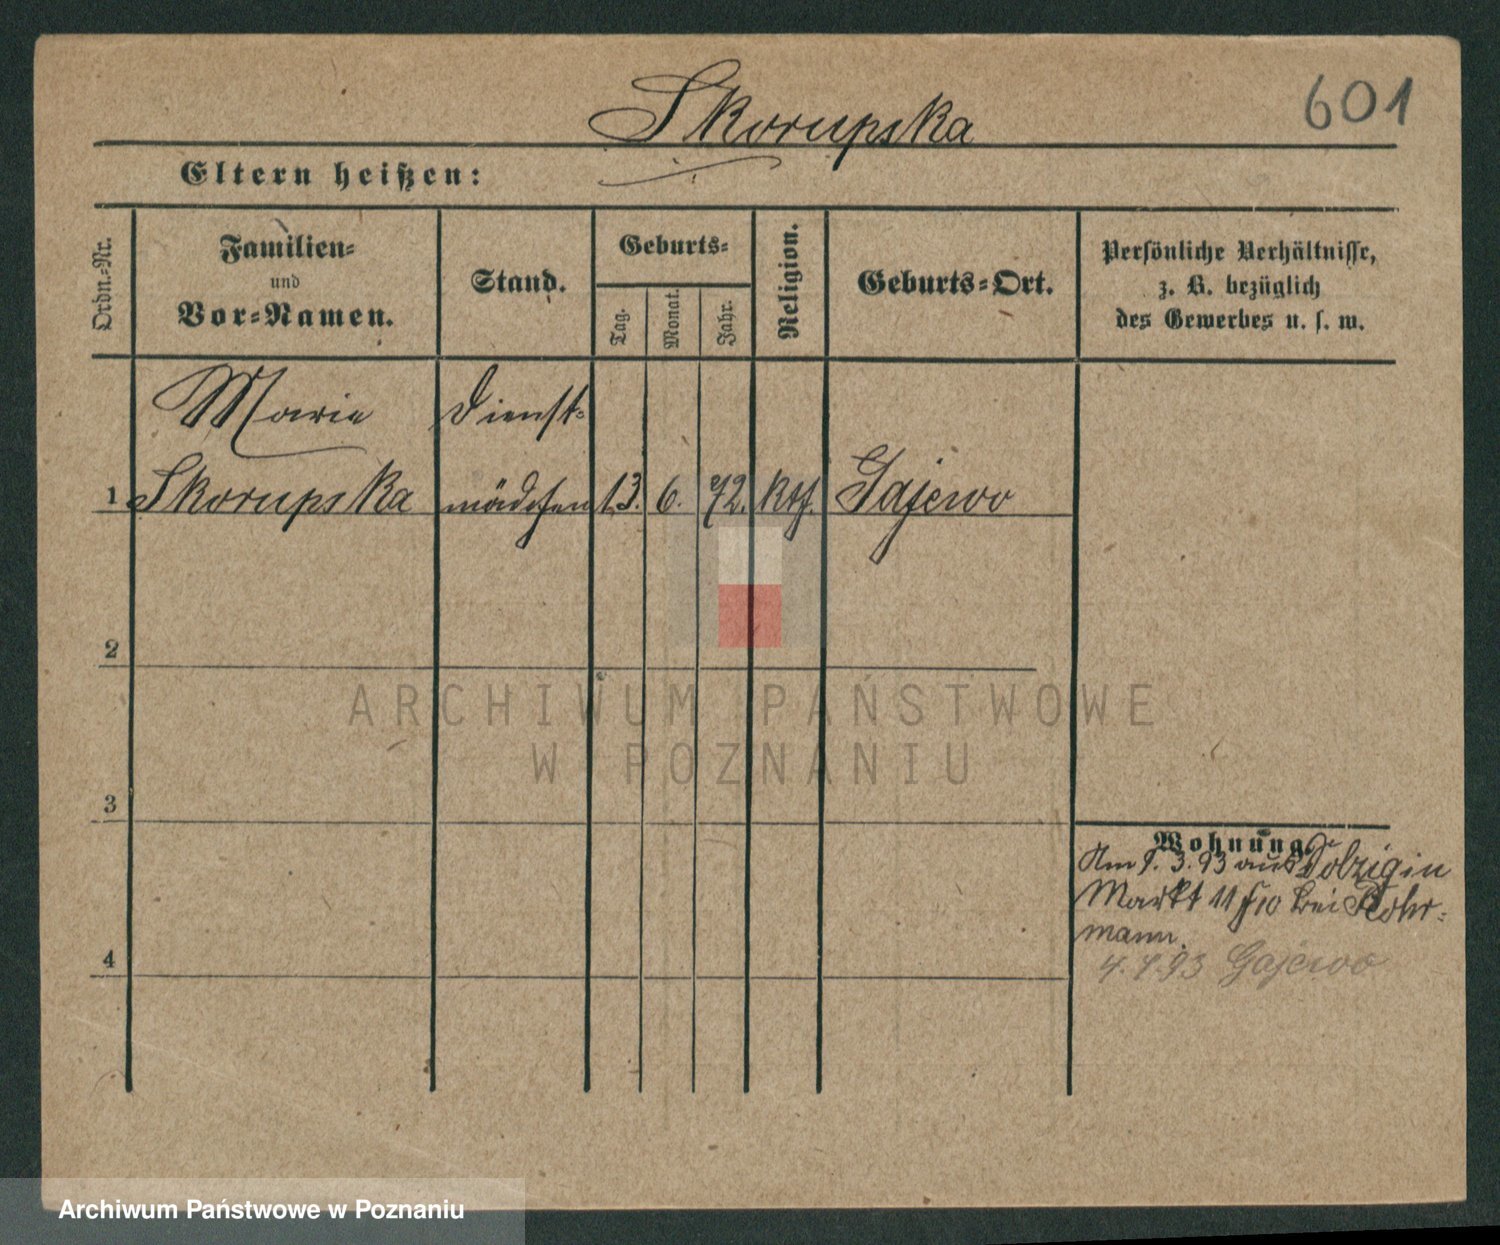 601
Skorupska
Eltern heißen:
Ordn.-Nr.
Familien-
und
Vor-Namen.
Stand.
Geburts-
Tag.
Monat.
Jahr.
Religion.
Geburts-Ort.
Persönliche Verhältnisse,
z. B. bezüglich
des Gewerbes u. s. w.
Marie Dienst-
1 Skorupska mädchen 13. 6. 72. kth. Gajewo
2
ARCHIWUM PAŃSTWOWE
W POZNANIU
3
Wohnung.
Am 3.93 aus Dolzig in
Markt 11 bei Rohr-
mann.
4
4.4.93 Gajewo
Archiwum Państwowe w Poznaniu